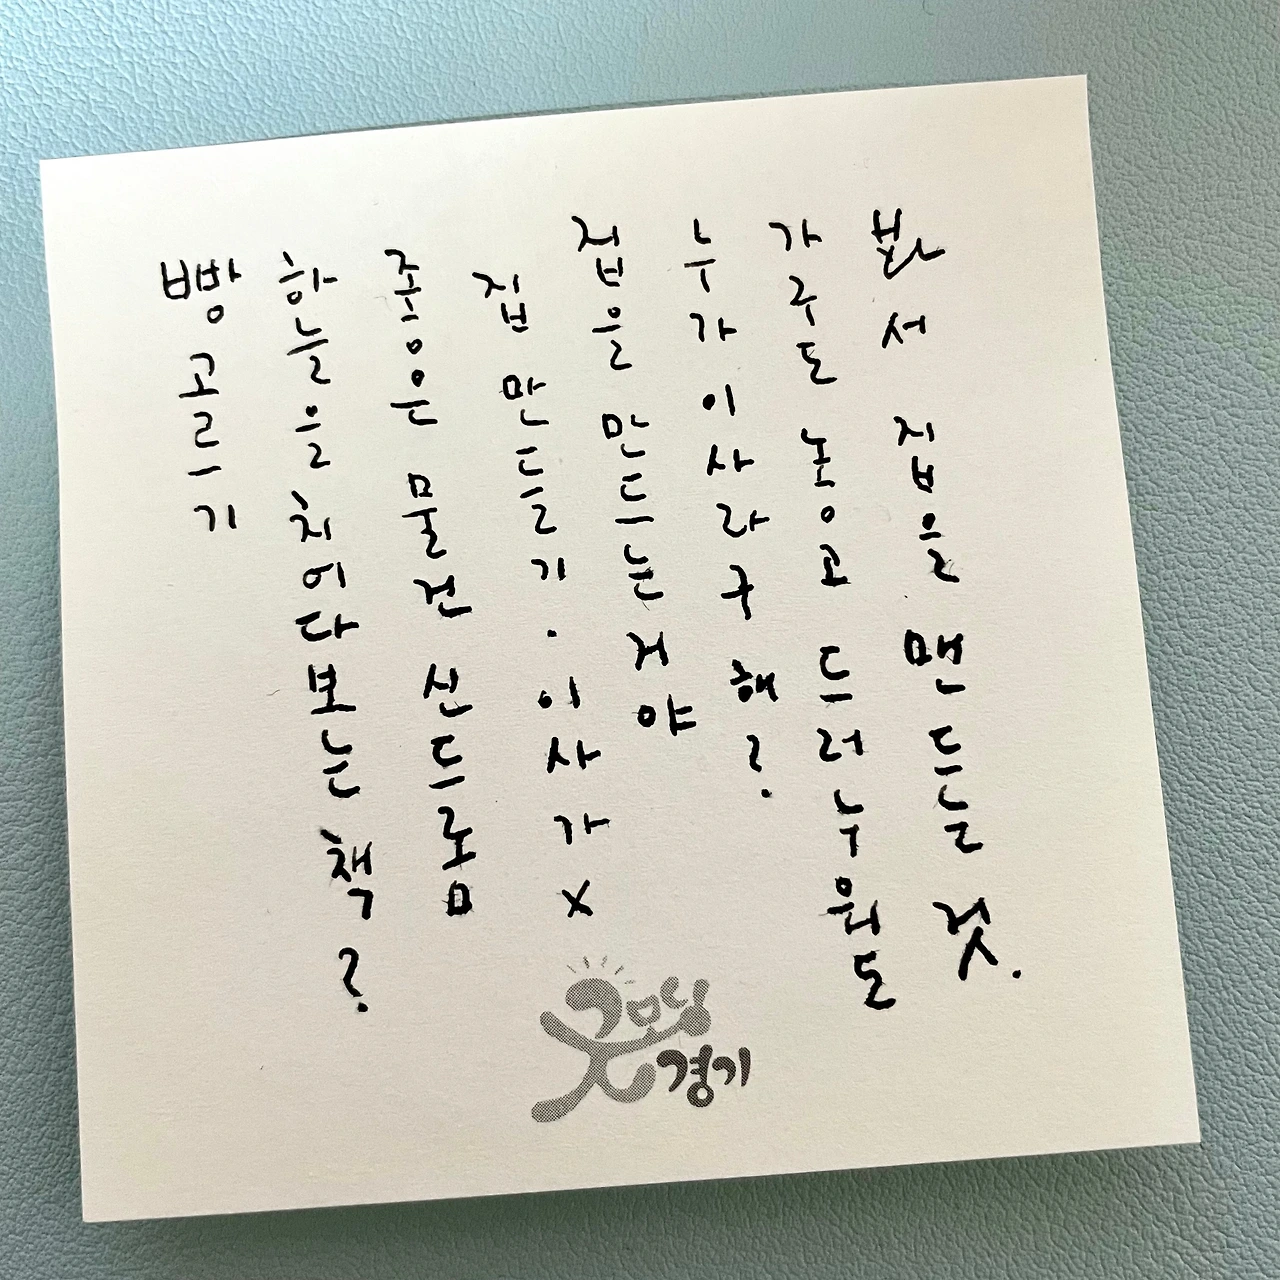 빵 고르기
하늘을 치어다보는 책?
좋은 물건 신드롬
집 만들기. 이사가X
집을 만드는 거야
누가 이사라구 해?
가구도 놓고 드러누워도
봐서 집을 맨드는 것.
굿모닝
경기